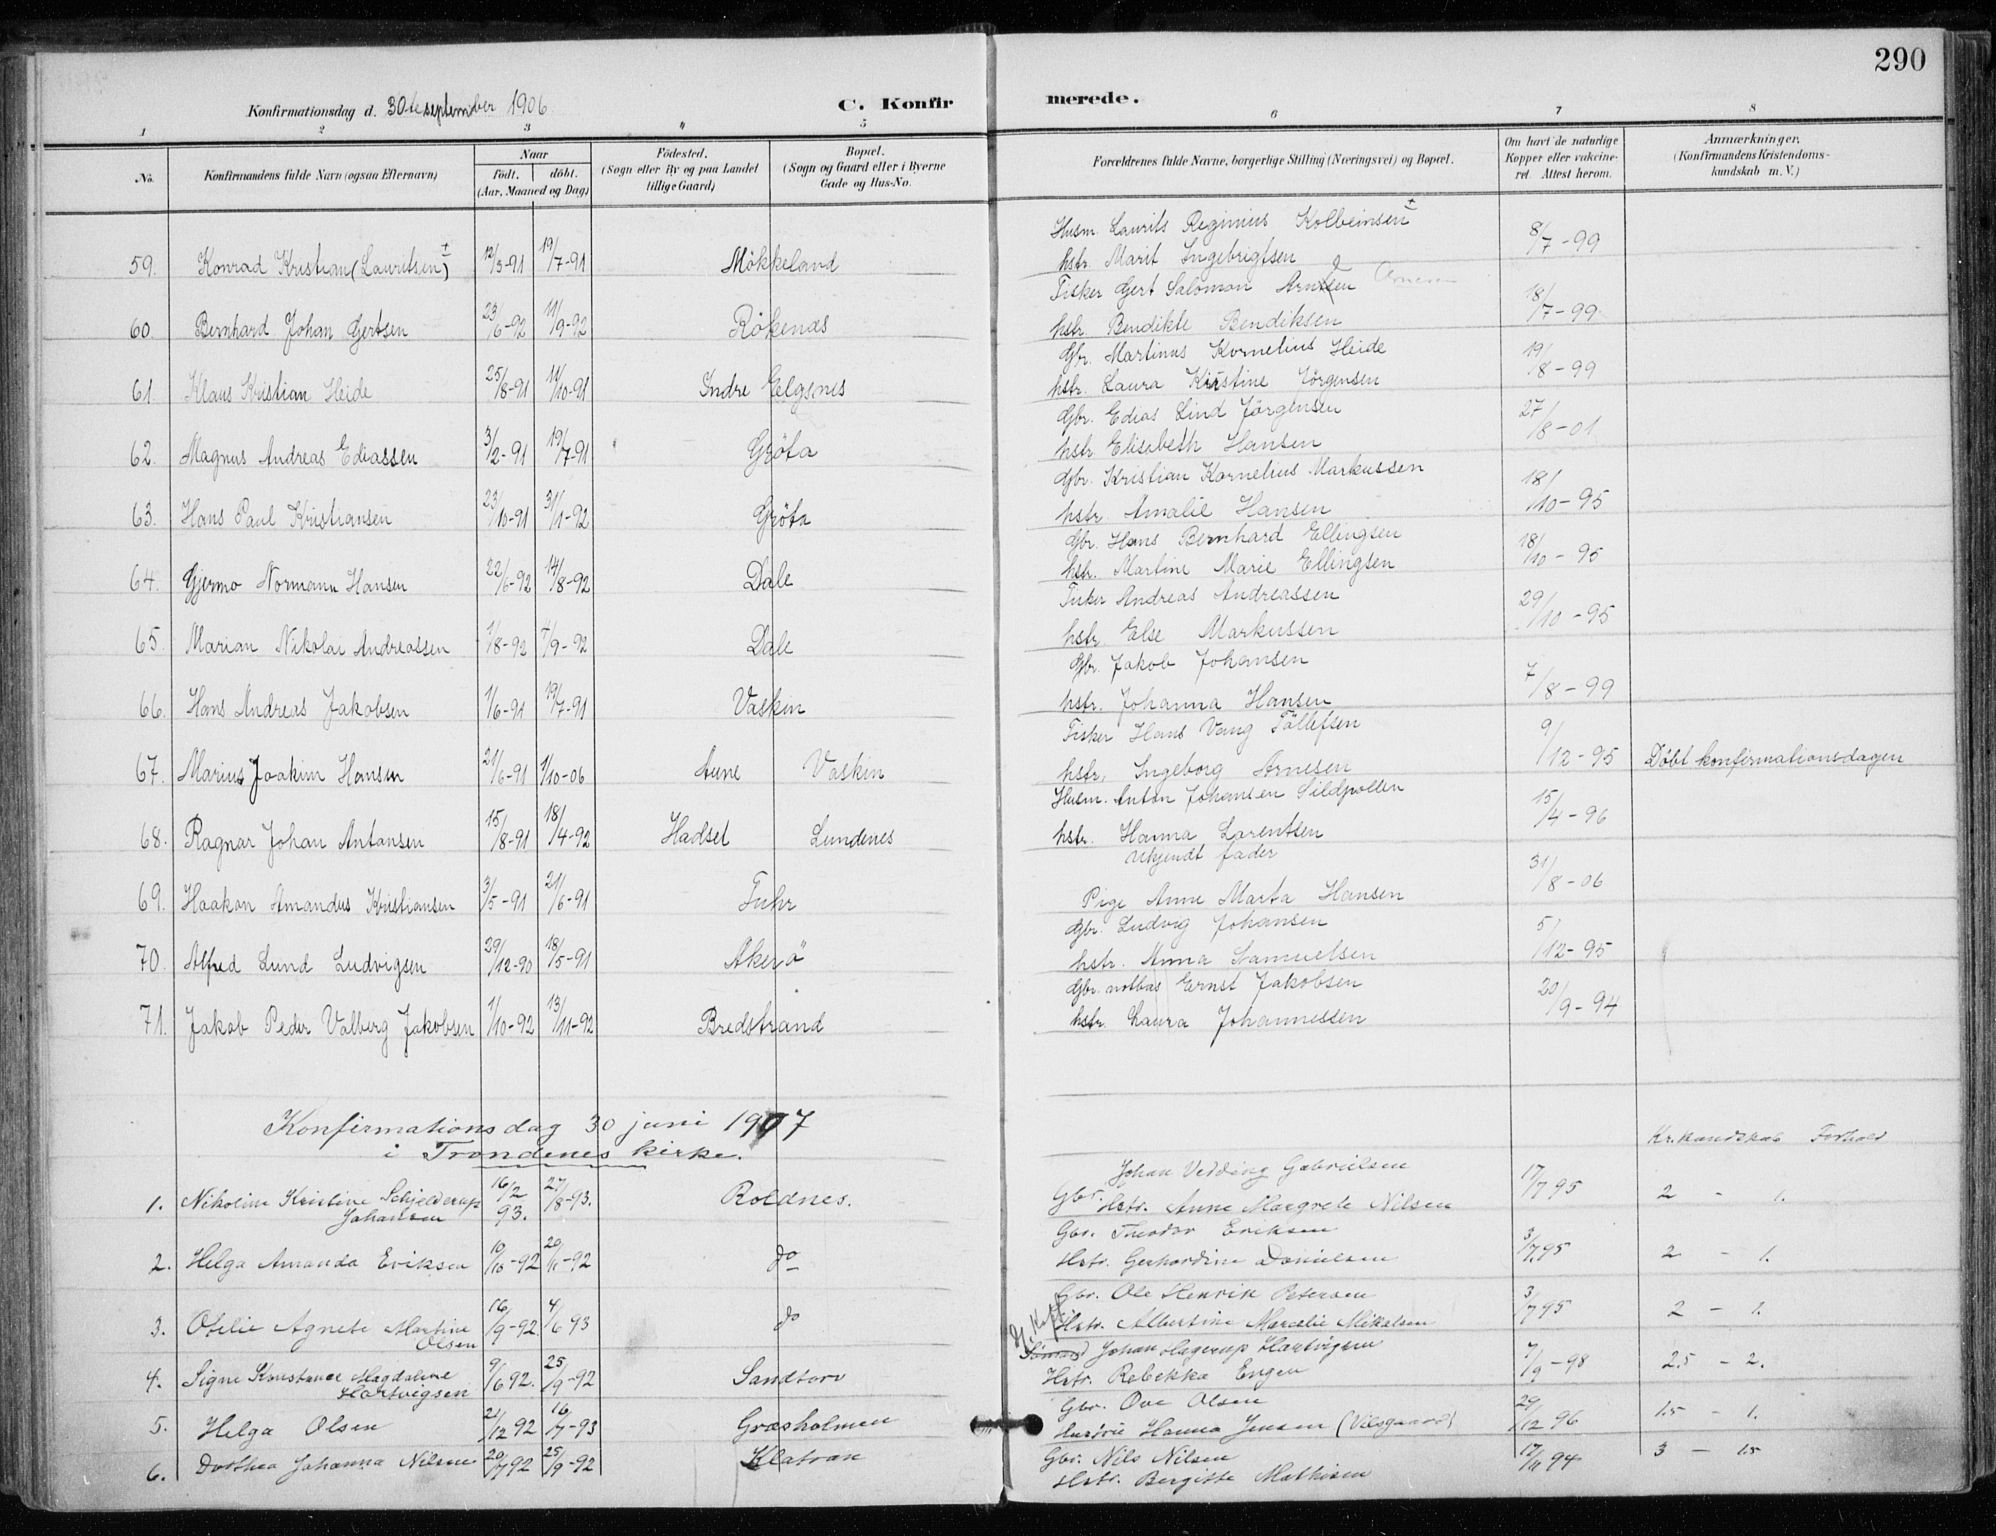 290
Konfirmationsdag d. 30te september 1906.
C. Konfirmerede.
1 2 3 4 5 6 7 8
No.
Konfirmandens fulde Navn (ogsaa Efternavn)
Naar
födt. döbt.
(Aar, Maaned og Dag)
Födested.
(Sogn eller By og paa Landet
tillige Gaard)
Bopæl.
(Sogn og Gaard eller i Byerne
Gade og Hus-No.
Forældrenes fulde Navne, borgerlige Stilling (Næringsvei) og Bopæl.
Om havt de naturlige
Kopper eller vakcine-
ret. Attest herom.
Anmærkninger.
(Konfirmandens Kristendoms-
kundskab m. V.)
Husm. Laurits Reginius Kolbeinsen ±
59. Konrad Kristian (Lauritsen) ± 12/3-91 19/7-91 Mökkeland hstr. Marit Ingebrigtsen 8/7-99
Fisker Gert Salomon Arntsen Arnesen
60. Bernhard Johan Gertsen 23/6-92 11/9-92 Rökenæs hstr. Bendikte Bendiksen 18/7-99
Gbr. Martinus Kornelius Heide
61. Klaus Kristian Heide 25/8-91 11/10-91 Indre Elgsnes hstr. Laura Kirstine Jörgensen 19/8-99
Gbr. Edias Lind Jörgensen
62. Magnus Andreas Ediassen 3/2-91 19/7-91 Gröta hstr. Elisabeth Hansen 27/8-01
Gbr. Kristian Kornelius Markussen
63. Hans Paul Kristiansen 23/10-91 31/1-92 Gröta hstr. Amalie Hansen 18/10-95
Gbr. Hans Bernhard Ellingsen
64. Gjermo Normann Hansen 22/6-92 14/8-92 Dale hstr. Martine Marie Ellingsen 18/10-95
Fisker Andreas Andreassen
65. Marian Nikolai Andreassen 1/8-92 4/9-92 Dale hstr. Else Markussen 29/10-95
Gbr. Jakob Johansen
66. Hans Andreas Jakobsen 1/6-91 19/7-91 Vaskin hstr. Johanna Hansen 7/8-99
Fisker Hans Vang Töllefsen
67. Marius Joakim Hansen 21/6-91 1/10-06 Aune Vaskin hstr. Ingeborg Arnesen 9/12-95 Döbt konfirmationsdagen
Husm. Anton Johansen Sildpollen
68. Ragnar Johan Antonsen 15/8-91 18/4-92 Hadsel Lundenes hstr. Hanna Larentsen 15/4-96
Ukjendt fader
69. Haakon Amandus Kristiansen 3/5-91 21/6-91 Fuhr Pige Anne Marta Hansen 31/8-06
Gbr. Ludvig Johansen
70. Alfred Lund Ludvigsen 29/12-90 18/5-91 Akerö hstr. Anna Samuelsen 5/12-95
Gbr. notbas Ernst Jakobsen
71. Jakob Peder Valberg Jakobsen 1/10-92 13/11-92 Bredstrand hstr. Laura Johannessen 20/9-94
Konfirmationsdag 30 juni 1907
i Trondenes kirke.
Kr.kundskab Forhold
Johan Vedding Gabrielsen
1. Nikoline Kristine Schjelderup 16/2 93. 27/8-93. Roldnes. Gbr. Hstr. Anne Margrete Nilsen 17/7 95 2 - 1.
Johansen
Gbr. Theodor Eriksen
2. Helga Amanda Eriksen 10/10-92 20/11-92 do Hstr. Gerhardine Danielsen 3/7 95 2 - 1.
Gbr. Ole Henrik Petersen
3. Ofelie Agnete Martine 16/9-92. 4/6 93 do Hstr. Albertine Marcelie Mikalsen 3/7 95 2 - 1.
Olsen
Johan Hagerup Hartvigsen
4. Signe Konstance Magdalene 9/6 92. 25/9-92 Sandtorv Hstr. Rebekka Engen 7/9-98 2.5 - 2.
Hartvigsen
Gbr. Ove Olsen
5. Helga Olsen 21/12 92 16/7-93 Græsholmen Hustru Hanna Jensen (Vilsgaard) 29/12 96 1.5 - 1.
Gbr. Nils Nilsen
6. Dorthea Johanna Nilsen 20/7 92 25/9-92 Klatran 17/11 94 3 - 1.5
Hstr. Bergitte Mathisen